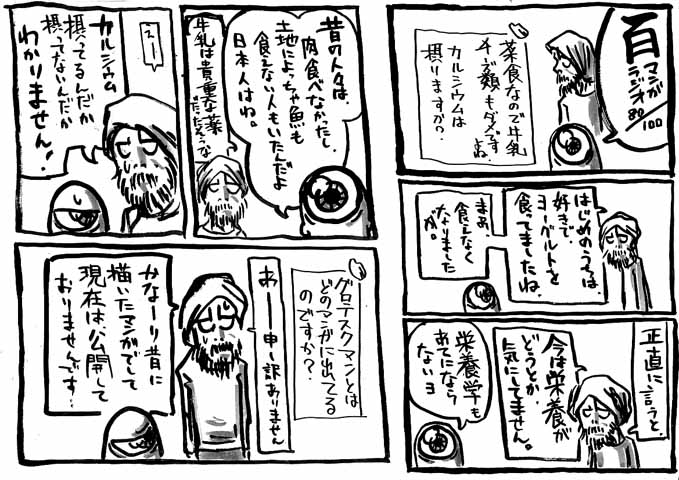 百
マンガ
ラジオ
80
100
菜食なので牛乳
チーズ類もダメですよね。
カルシウムは
摂りますか?
はじめのうちは、
好きで、
ヨーグルトを
食ってましたね。
まあ、
食えなく
なりました
が。
正直に言うと、
今は栄養が
どうとか、
気にしてません。
栄養学も
あてになら
ないヨ
昔の人々は、
肉食べなかったし、
土地によっちゃ魚も
食えない人もいたんだよ
日本人はね。
牛乳は貴重な薬
だったそうな
えー
カルシウム
摂ってるんだか
摂ってないんだか
わかりません!
グロテスクマンとは
どのマンガに出てる
のですか?
あー申し訳ありません
かなーり昔に
描いたマンガでして
現在は、公開して
おりませんです!